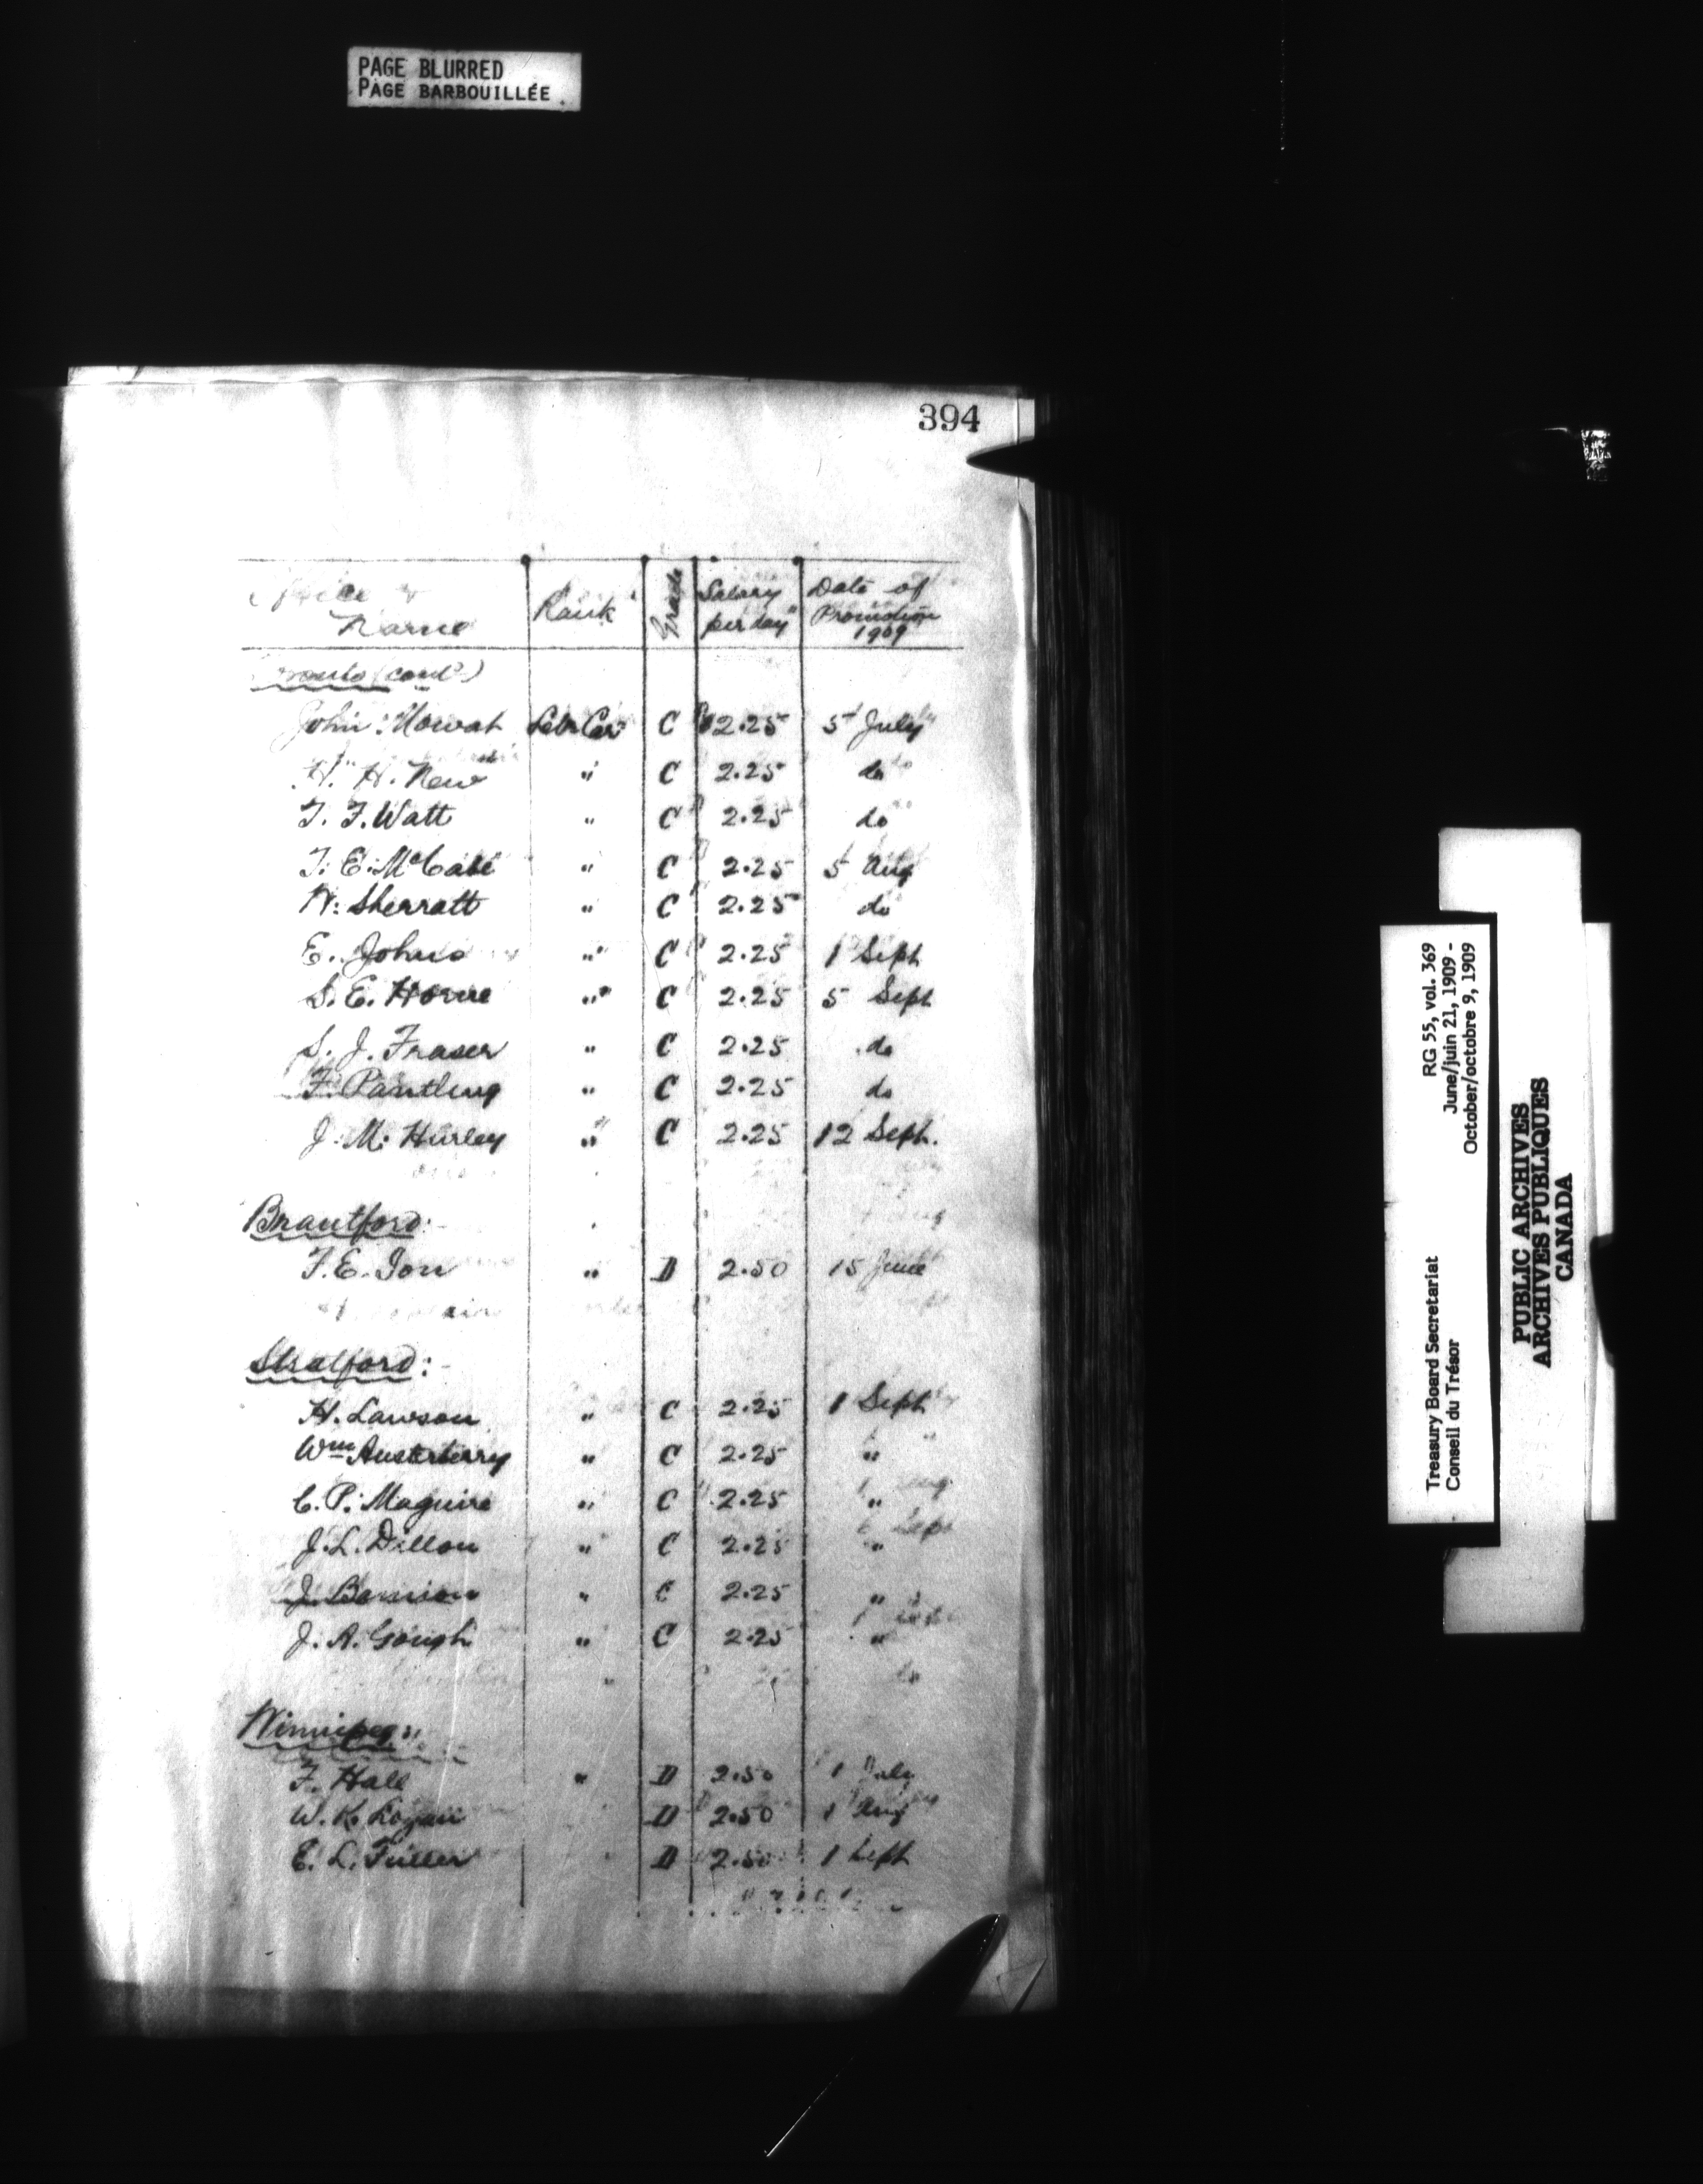 PAGE BLURRED
PAGE BARBOUILLÉE.
394
Office & Name | Rank | Grade | Salary per day | Date of Promotion 1909
Toronto (cont'd)
John Mowat Let. Car. C $2.25 5 July
H. H. New " C 2.25 do
T. F. Watt " C 2.25 do
T. E. McCabe " C 2.25 5 Aug
W. Sherratt " C 2.25 do
E. Johns " C 2.25 1 Sept
S. E. Horne " C 2.25 5 Sept
S. J. Fraser " C 2.25 do
F. Pantling " C 2.25 do
J. M. Hurley " C 2.25 12 Sept.
Brantford:
F. E. Ion " D 2.50 15 June
Stratford:
H. Lawson " C 2.25 1 Sept
Wm Austerberry " C 2.25 "
C. P. Maguire " C 2.25 "
J. L. Dillon " C 2.25 "
J. " C 2.25 "
J. A. Gough " C 2.25 "
Winnipeg:
F. Hall " D 2.50 1 July
W. K. Logan D 2.50 1 Aug
E. L. Fuller D 2.50 1 Sept
RG 55, vol. 369
June/juin 21, 1909 -
October/octobre 9, 1909
Treasury Board Secretariat
Conseil du Trésor
PUBLIC ARCHIVES
ARCHIVES PUBLIQUES
CANADA